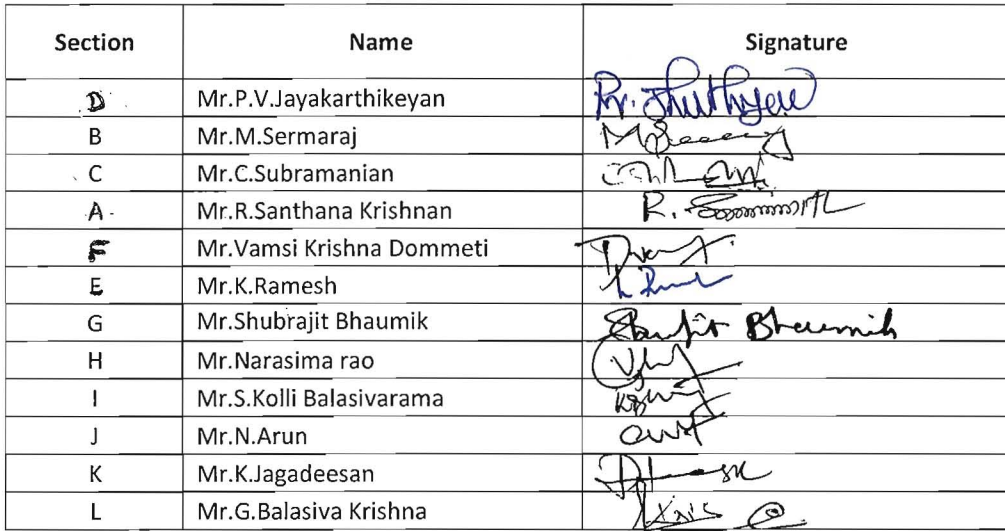 Section Name Signature
D Mr.P.V.Jayakarthikeyan
B Mr.M.Sermaraj
C Mr.C.Subramanian
A Mr.R.Santhana Krishnan R.
F Mr.Vamsi Krishna Dommeti
E Mr.K.Ramesh
G Mr.Shubrajit Bhaumik Bhaumik
H Mr.Narasima rao
I Mr.S.Kolli Balasivarama
J Mr.N.Arun
K Mr.K.Jagadeesan
L Mr.G.Balasiva Krishna